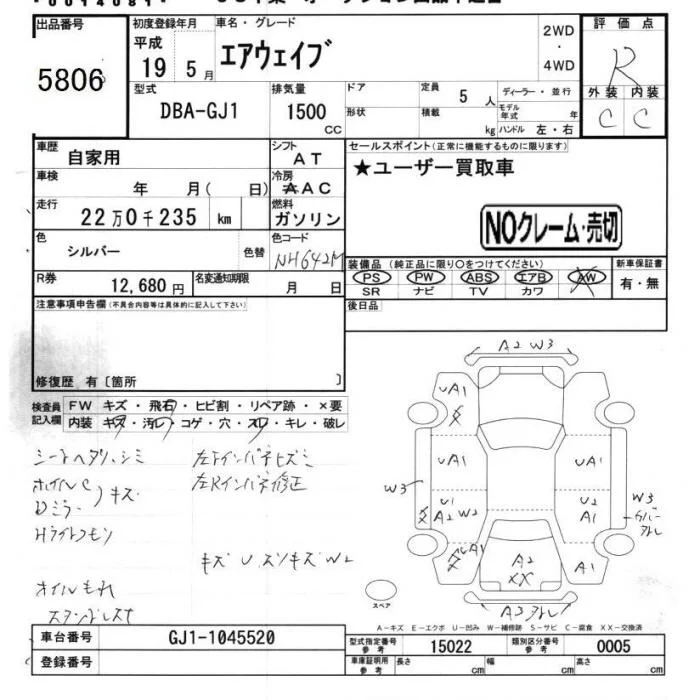 出品番号 初度登録年月 車名・グレード 2WD 評価点
5806 平成 19 5月 エアウェイブ ・ 4WD R
型式 排気量 ドア 定員 ディーラー・並行 外装 内装
DBA-GJ1 1500 CC 形状 積載 5人 kg モデル年式 年 ハンドル 左・右 C C
車歴 自家用 シフト AT セールスポイント(正常に機能するものに限ります)
車検 年 月( 日) 冷房 AAC ★ユーザー買取車
走行 22万0千235 km 燃料 ガソリン NOクレーム・売切
色 シルバー 色替 色コード NH642M 装備品(純正品に限り〇をつけてください) 新車保証書
R券 12,680円 名変通知期限 月 日 PS PW ABS エアB AW 有・無
SR ナビ TV カワ
注意事項申告欄(不具合内容等は具体的に記入して下さい) 後日品
修復歴 有〔箇所 〕
検査員記入欄 FW キズ・飛石・ヒビ割・リペア跡・×要
内装 キズ・汚レ・コゲ・穴・スレ・キレ・破レ
A2 W3
UA1
UA1 UA1
W3 U1 A2 W2 U2 A1 W3
A1 A2 XX A1
シートヘタリ、シミ
ホイルC
Dミラー キズ
左Rインパネ修正
キズ U W2
オイルもれ
スペア
A-キズ E-エクボ U-凹み W-補修跡 S-サビ C-腐食 XX-交換済
車台番号 GJ1-1045520 型式指定番号 参考 15022 類別区分番号 参考 0005
登録番号 車庫証明用 参考 長さ cm 幅 cm 高さ cm